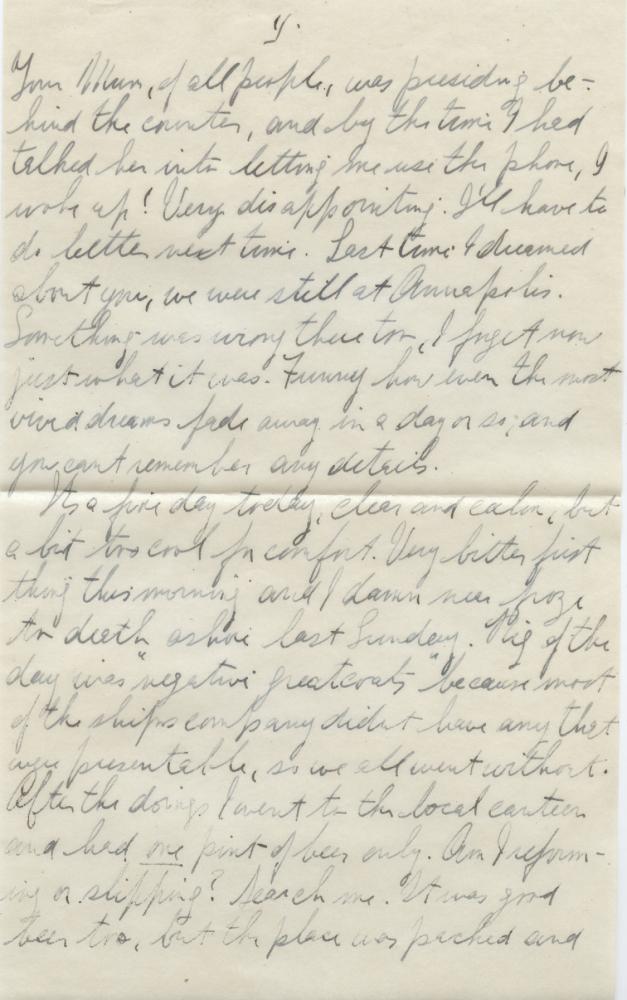 4.
Your Mum, of all people, was presiding be-
hind the counter, and by the time I had
talked her into letting me use the phone, I
woke up! Very disappointing. I'll have to
do better next time. Last time I dreamed
about you, we were still at Annapolis.
Something was wrong there too, I forget now
just what it was. Funny how even the most
vivid dreams fade away in a day or so, and
you cant remember any details.
Its a fine day today, clear and calm, but
a bit too cool for comfort. Very bitter first
thing this morning and I damn near froze
to death ashore last Sunday. Rig of the
day was "negative greatcoats" because most
of the ships company didnt have any that
were presentable, so we all went without.
After the doings I went to the local canteen
and had one pint of beer only. Am I reform-
ing or slipping? Search me. It was good
beer too, but the place was packed and